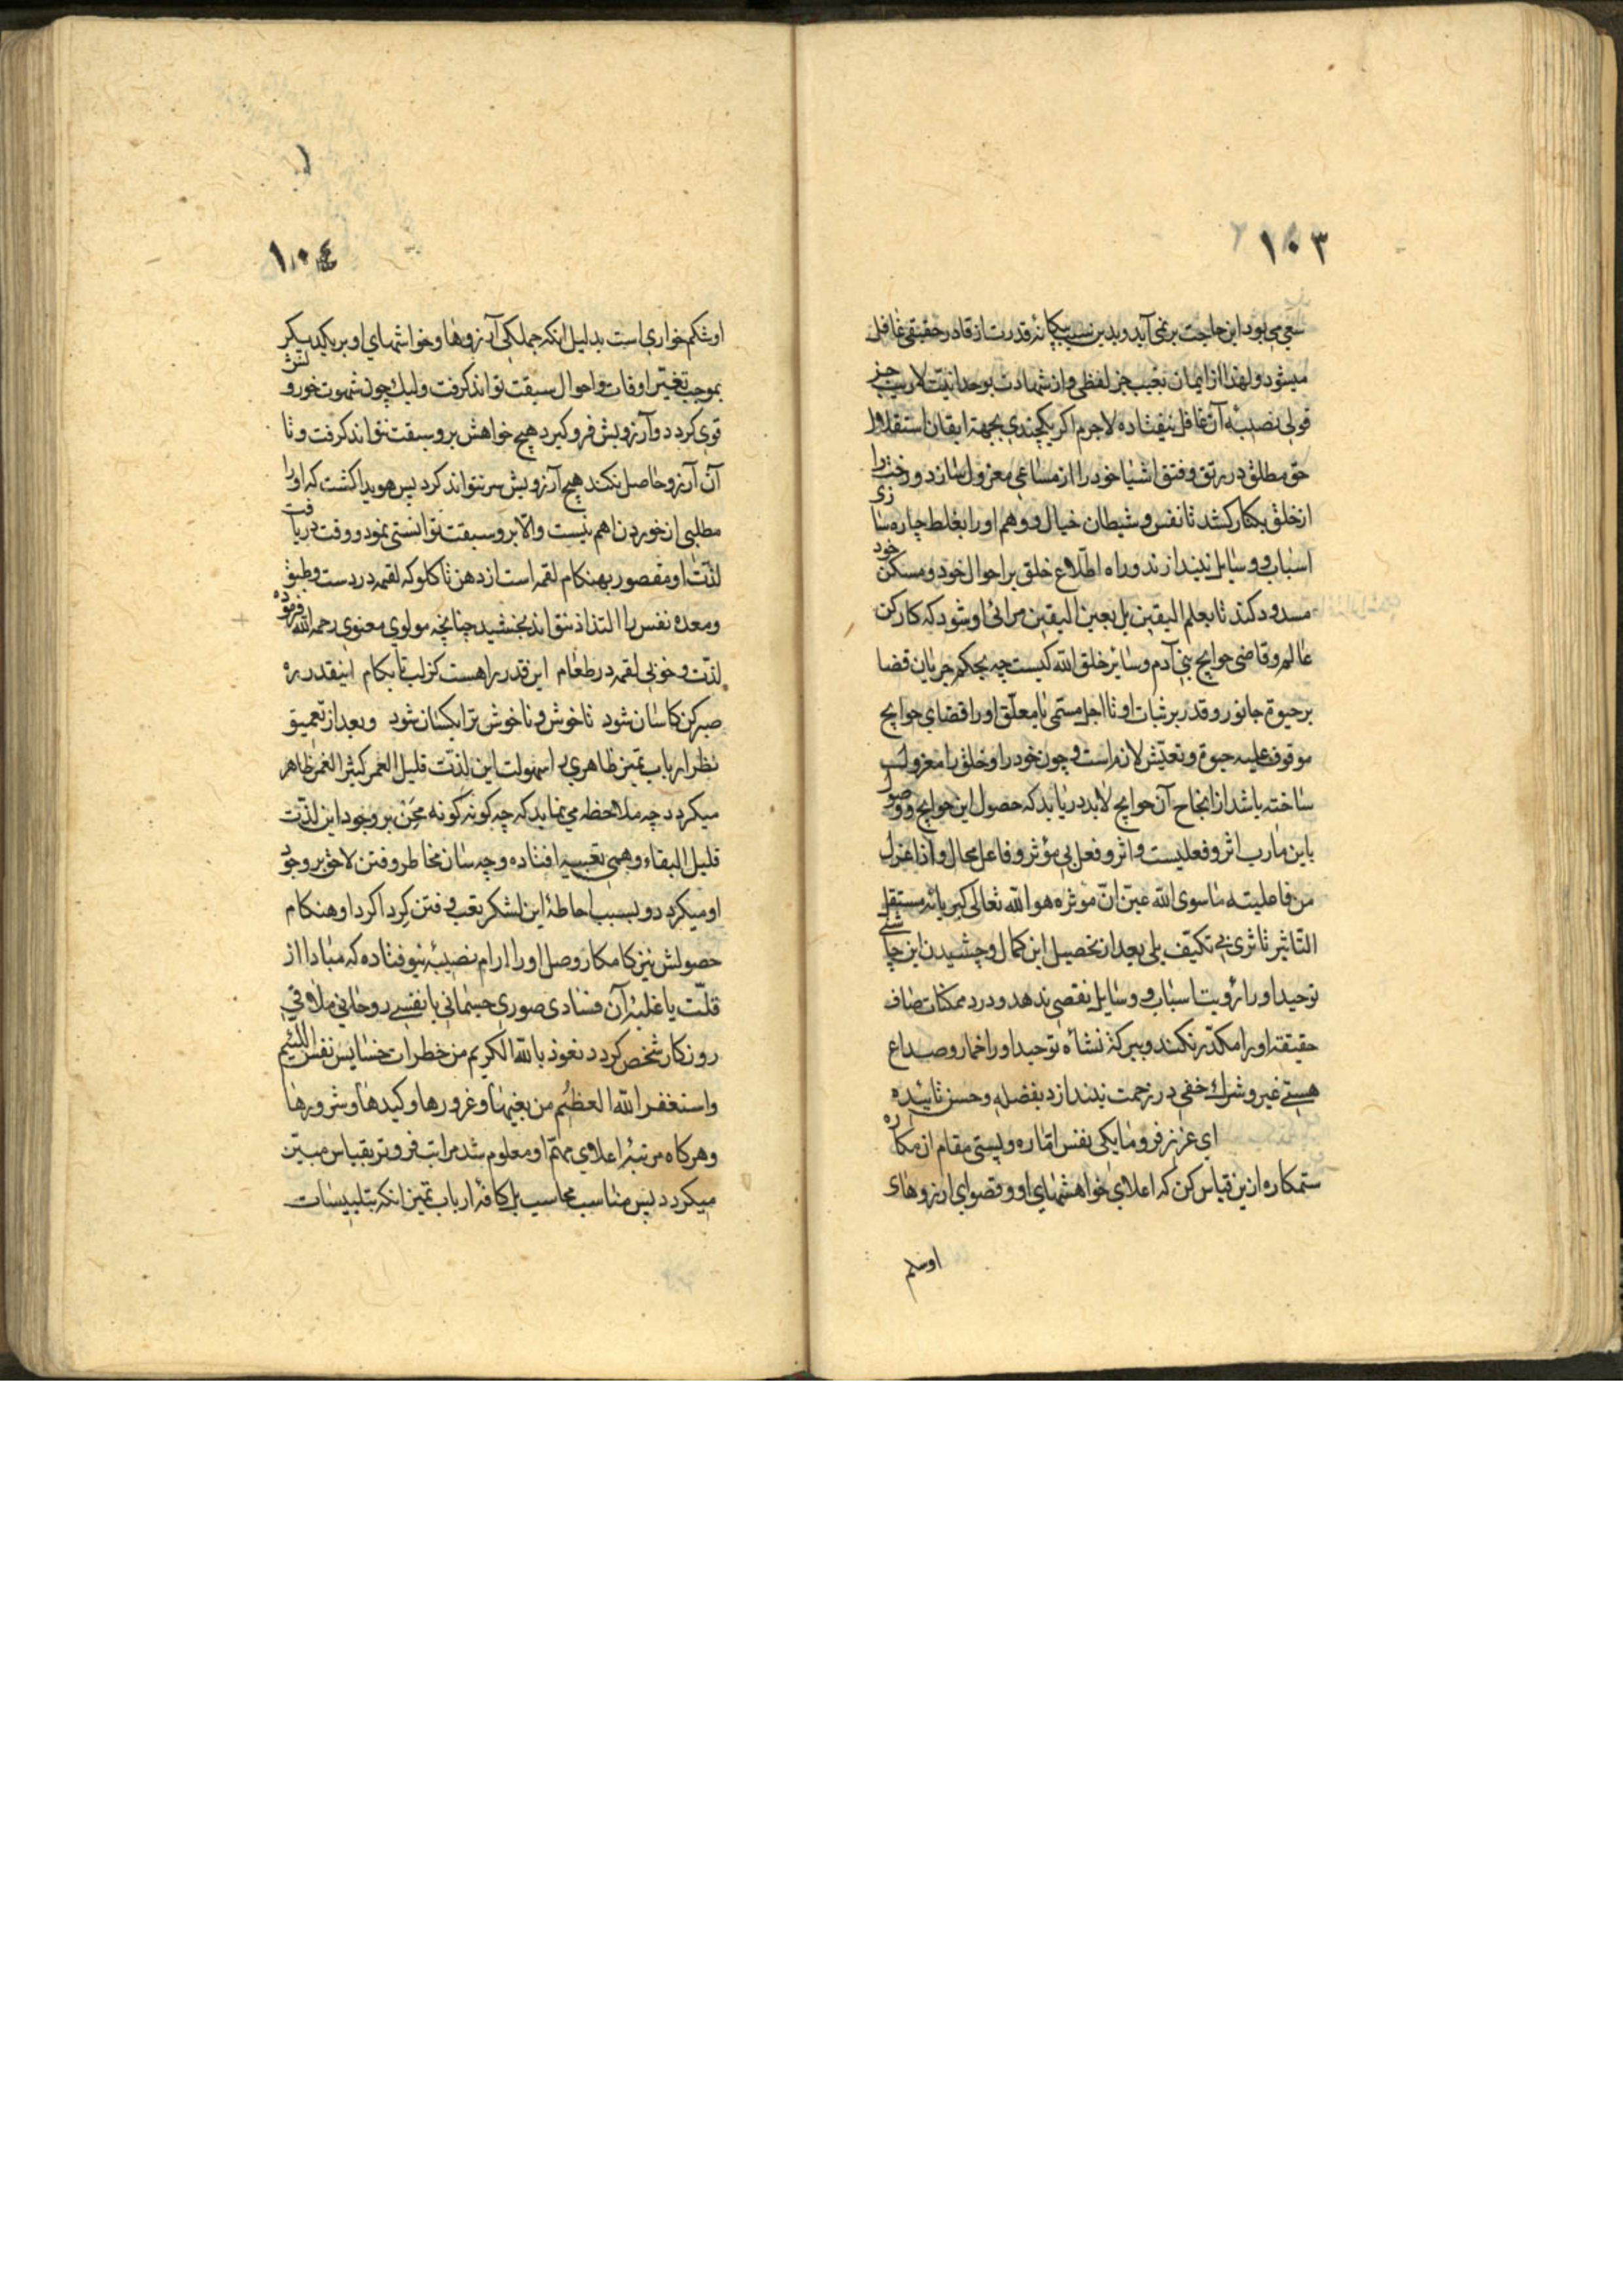 ١٠٣
سعی می بود این حاجت بر نمی آید و بدین سبب بیکانهٔ قدرت از قادر حقیقی غافل
میشود و لهذا از ایمان بغیب جز لفظی و از شهادت بوحدانیت لاریب جز
قولی نصیبهٔ آن غافل نیفتاده لاجرم اکر یکچندی بجهة ایقان استقلال
حق مطلق در رتق و فتق اشیا خود را از مساعی معزول سازد و رخت را
از خلق بکنار کشد تا نفس و شیطان خیال و وهم او را بغلط چاره سازی
اسباب و وسایل نیندازند و راه اطلاع خلق بر احوال خود و مسکن خود
مسدود کند تا بعلم الیقین بل بعین الیقین مرائی او شود که کارکن
عالم و قاضی حوایج بنی آدم و سائر خلق الله کیست چه بحکم جریان قضا
بر حیوة جانور و قدر بر ثبات او تا اجل مسمی نامعلق او را قضای حوایج
موقوف علیه حیوة و تعیّش لازم است و چون خود را و خلق را معزول
ساخته باشد از انجاح آن حوایج لابد دریابد که حصول این حوایج و وصول
باین مارب اثر و فعلیست و اثر و فعل بی مؤثر و فاعل محال و اذا عزل
من فاعلیته ما سوی الله عیّن انّ موثره هو الله تعالی کبریائه مستقل
التاثیر تاثری بی تکیّف بلی بعد از تحصیل این کمال و چشیدن این چاشنی
توحید او را رؤیت اسباب و وسایل نقصی ندهد و درد ممکنات صاف
حقیقة او را مکدّر نکند و بی کز نشاه توحید او را خمار و صداع
هستی غیر و شرك خفی در زحمت نیندازد بفضله و حسن تائیده
ای عزیز فرومایکی نفس اماره و پستی مقام ان مکاره
ستمکاره ازین قیاس کن که اعلای خواهشهای او و قصوای ارزوهای
او شکم
١٠٤
او شکم خواری است بدلیل انکه جملکی آرزوها و خواشهای او بر یکدیکر
بموجب تغیّر اوقات و احوال سبقت تواند کرفت ولیك چون شهوت خورونش
قوی کردد و آرزویش فرو کیرد هیچ خواهش برو سبقت نتواند کرفت و تا
آن آرزو حاصل نکند هیچ آرزویش سر نتواند کرد پس هویدا کشت که او را
مطلبی از خوردن اهم نیست والّا برو سبقت توانستی نمود و وقت دریافت
لذّت او مقصور بهنکام لقمه است از دهن تا کلو که لقمه در دست و طبق
و معده نفس را التذاذ نتواند بخشید چنانچه مولوی معنوی رحمه الله فرموده
لذّت و خوبی لقمه در طعام این قدر راهست کز لب تا بکام اینقدر ره
صبر کن کاسان شود تا خوش و ناخوش ترا یکسان شود و بعد از تعمیق
نظر ارباب تمیز ظاهری را سهولت این لذّت قلیل العمر کثیر الغمر ظاهر
میکردد چه ملاحظه می نماید که چه کونه کونه محن بر وجود این لذّت
قلیل البقاء وهمی تعبیه افتاده و چه سان مخاطر و فتن لاحق بر وجود
او میکردد و بسبب احاطهٔ این لشکر تعب و فتن کرد اکرد او هنکام
حصولش نیز کامکار وصل او را ارام نصیبه نیوفتاده که مبادا از
قلّت یا غلبهٔ آن فسادی صوری جسمانی یا نفسی روحانی ملاقی
روزکار شخص کردد نعوذ بالله الکریم من خطرات خسایس نفس اللئیم
و استغفر الله العظیم من بغیها و غرورها و کیدها و شرورها
و هرکاه مرتبهٔ اعلای مهمّ او معلوم شد مراتب فروتر بقیاس مبیّن
میکردد پس مناسب محاسب بل کافهٔ ارباب تمیز انکه بتلبیسات